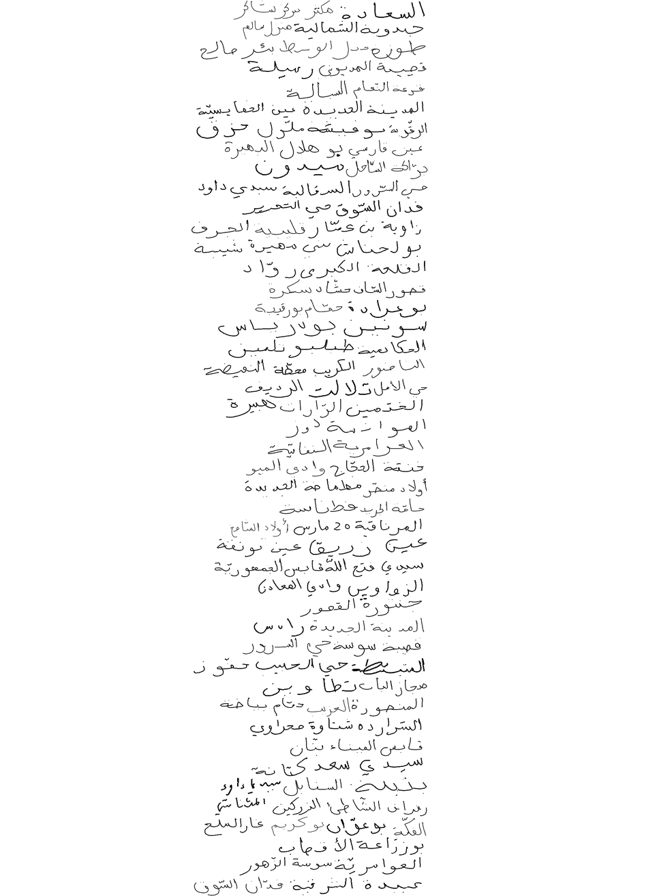 السعادة مكثر مركز شاكر
جبدوية الشمالية منزل سالم
طوزه منزل الوسط بئر صالح
قصيبة المديوني رميلة
فرعة النعام السالمة
المدينة الجديدة عين الصفايسيّة
الرقوبة بوفيشة ملّول حزق
عين فارسي بو هلال الدهيرة
الساحل ميدون
حي السرور السرفالية سيدي داود
فدان السّوق حي التحرير
زاوية بن عمّار قليبية الجرف
بولحناش سي مهيرة شيبة
القلعة الكبرى روّاد
قصور الساف مشاد سكرة
بوعرادة حمّام بورقيبة
سونين بودرياس
العكايمية طبلبو تلمين
الناظور الكريب معقلة النميضة
حي الامل تلالت الرديف
الختمين الزّارات هبيرة
العوانمة دوز
العرامرية النفاتية
خنقة الحجّاج وادي الميو
أولاد منصّر مطماطة الجديدة
حامّة الجريد غطناسة
المرناقية 20 مارس أولاد الشامخ
عين زريق عين نونفة
سيدي فتح الله قابس الجمهوريّة
الزواوين وادي المعادن
جندورة القصور
المدينة الجديدة راس
قصيبة سوسة حي السرور
السبيطلة حي الحبيب حفّوز
مجاز الباب تطاوين
المنصورة الغريب حمّام بياضة
السّرارده شتاوة صحراوي
قابس الميناء بنّان
سيدي سعد كتانة
بنبلة السنابل سيدي داود
زهرانة الشاطئ الزركين المشاشي
الفكّة بوعوّان بوكريم غار الملح
بوزراعة الأقصاب
العوامريّة سوسة الزّهور
عبيدة الشرقية فدّان السّوق